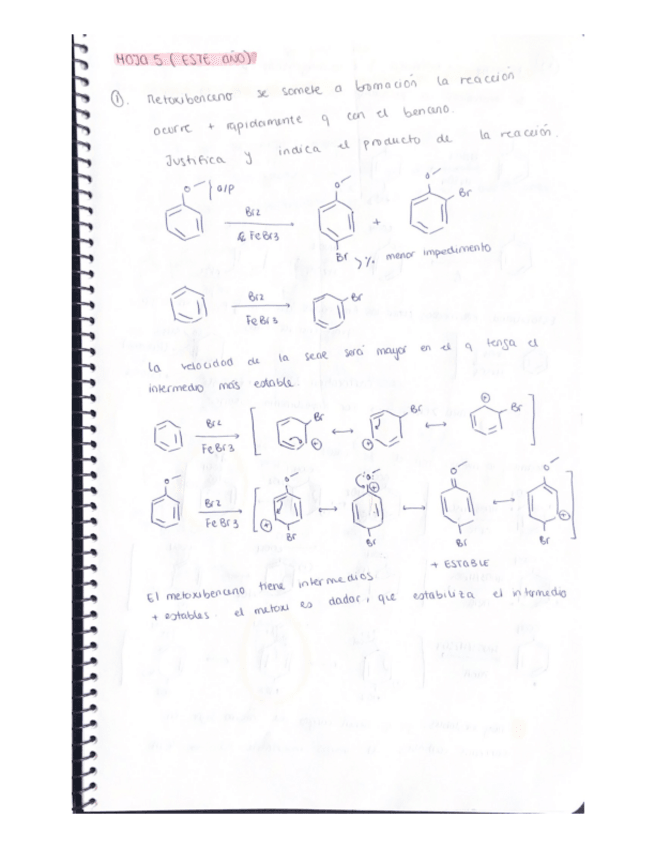 HOJA 5 (ESTE AÑO)
①. Metoxibenceno se somete a bromación la reacción
ocurre + rapidamente q con el benceno.
Justifica y indica el producto de la reacción.
O O/P Br2 FeBr3 O Br + O Br
>% menor impedimento
Br2 FeBr3 Br
La velocidad de la SEAr será mayor en el q tenga el
intermedio más estable.
Br2 FeBr3 [ Br ⊕ ↔ Br ⊕ ↔ ⊕ Br ]
O Br2 FeBr3 [ O ⊕ Br ↔ O ⊕ Br ↔ O Br ↔ O ⊕ Br ]
+ ESTABLE
El metoxibenceno tiene intermedios
+ estables. el metoxi es dador, que estabiliza el intermedio